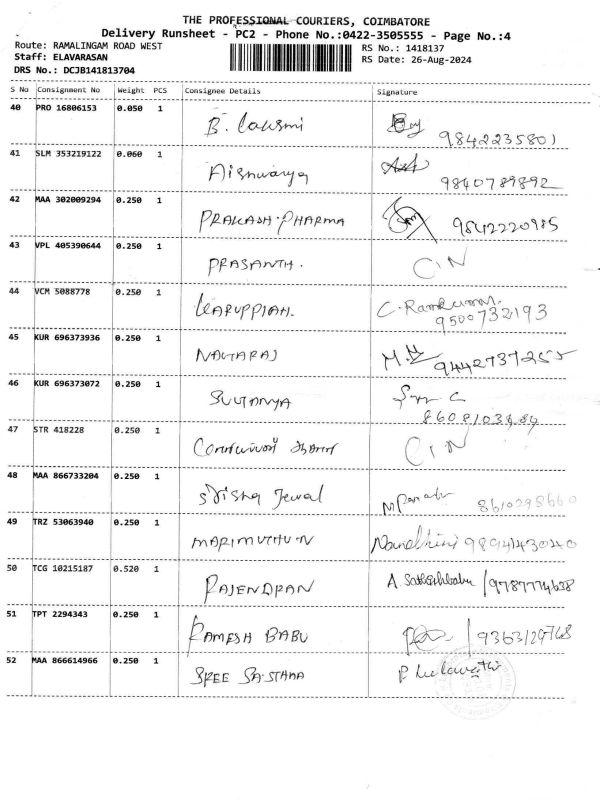 THE PROFESSIONAL COURIERS, COIMBATORE
Delivery Runsheet - PC2 - Phone No.:0422-3505555 - Page No.:4
Route: RAMALINGAM ROAD WEST RS No.: 1418137
Staff: ELAVARASAN RS Date: 26-Aug-2024
DRS No.: DCJB141813704
S No Consignment No Weight PCS Consignee Details Signature
40 PRO 16806153 0.050 1 B. Laksmi 9842235801
41 SLM 353219122 0.060 1 Aishwarya 9840789892
42 MAA 302009294 0.250 1 PRAKASH PHARMA 9842220985
43 VPL 405390644 0.250 1 PRASANTH. C/N
44 VCM 5088778 0.250 1 KARUPPIAH. C. Ramkumar
9500732193
45 KUR 696373936 0.250 1 NAGARAJ 9442737255
46 KUR 696373072 0.250 1 SUGANYA
47 STR 418228 0.250 1 C/N
48 MAA 866733204 0.250 1 Jewal
49 TRZ 53063940 0.250 1 MARIMUTHU N Nandhini 9894143040
50 TCG 10215187 0.520 1 RAJENDRAN A. Sathishbabu / 9787774638
51 TPT 2294343 0.250 1 RAMESH BABU / 9363129768
52 MAA 866614966 0.250 1 SREE SASTHAA